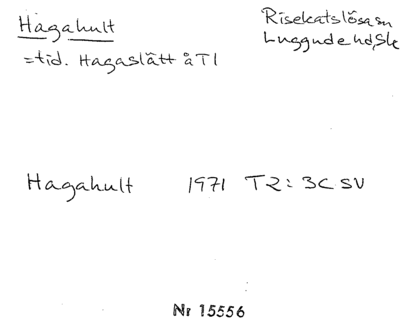 Hagahult
Risekatslösa sn
=tid. Hagaslätt å T1
Luggude hd, Sk
Hagahult 1971 T2: 3C SV
Nr 15556